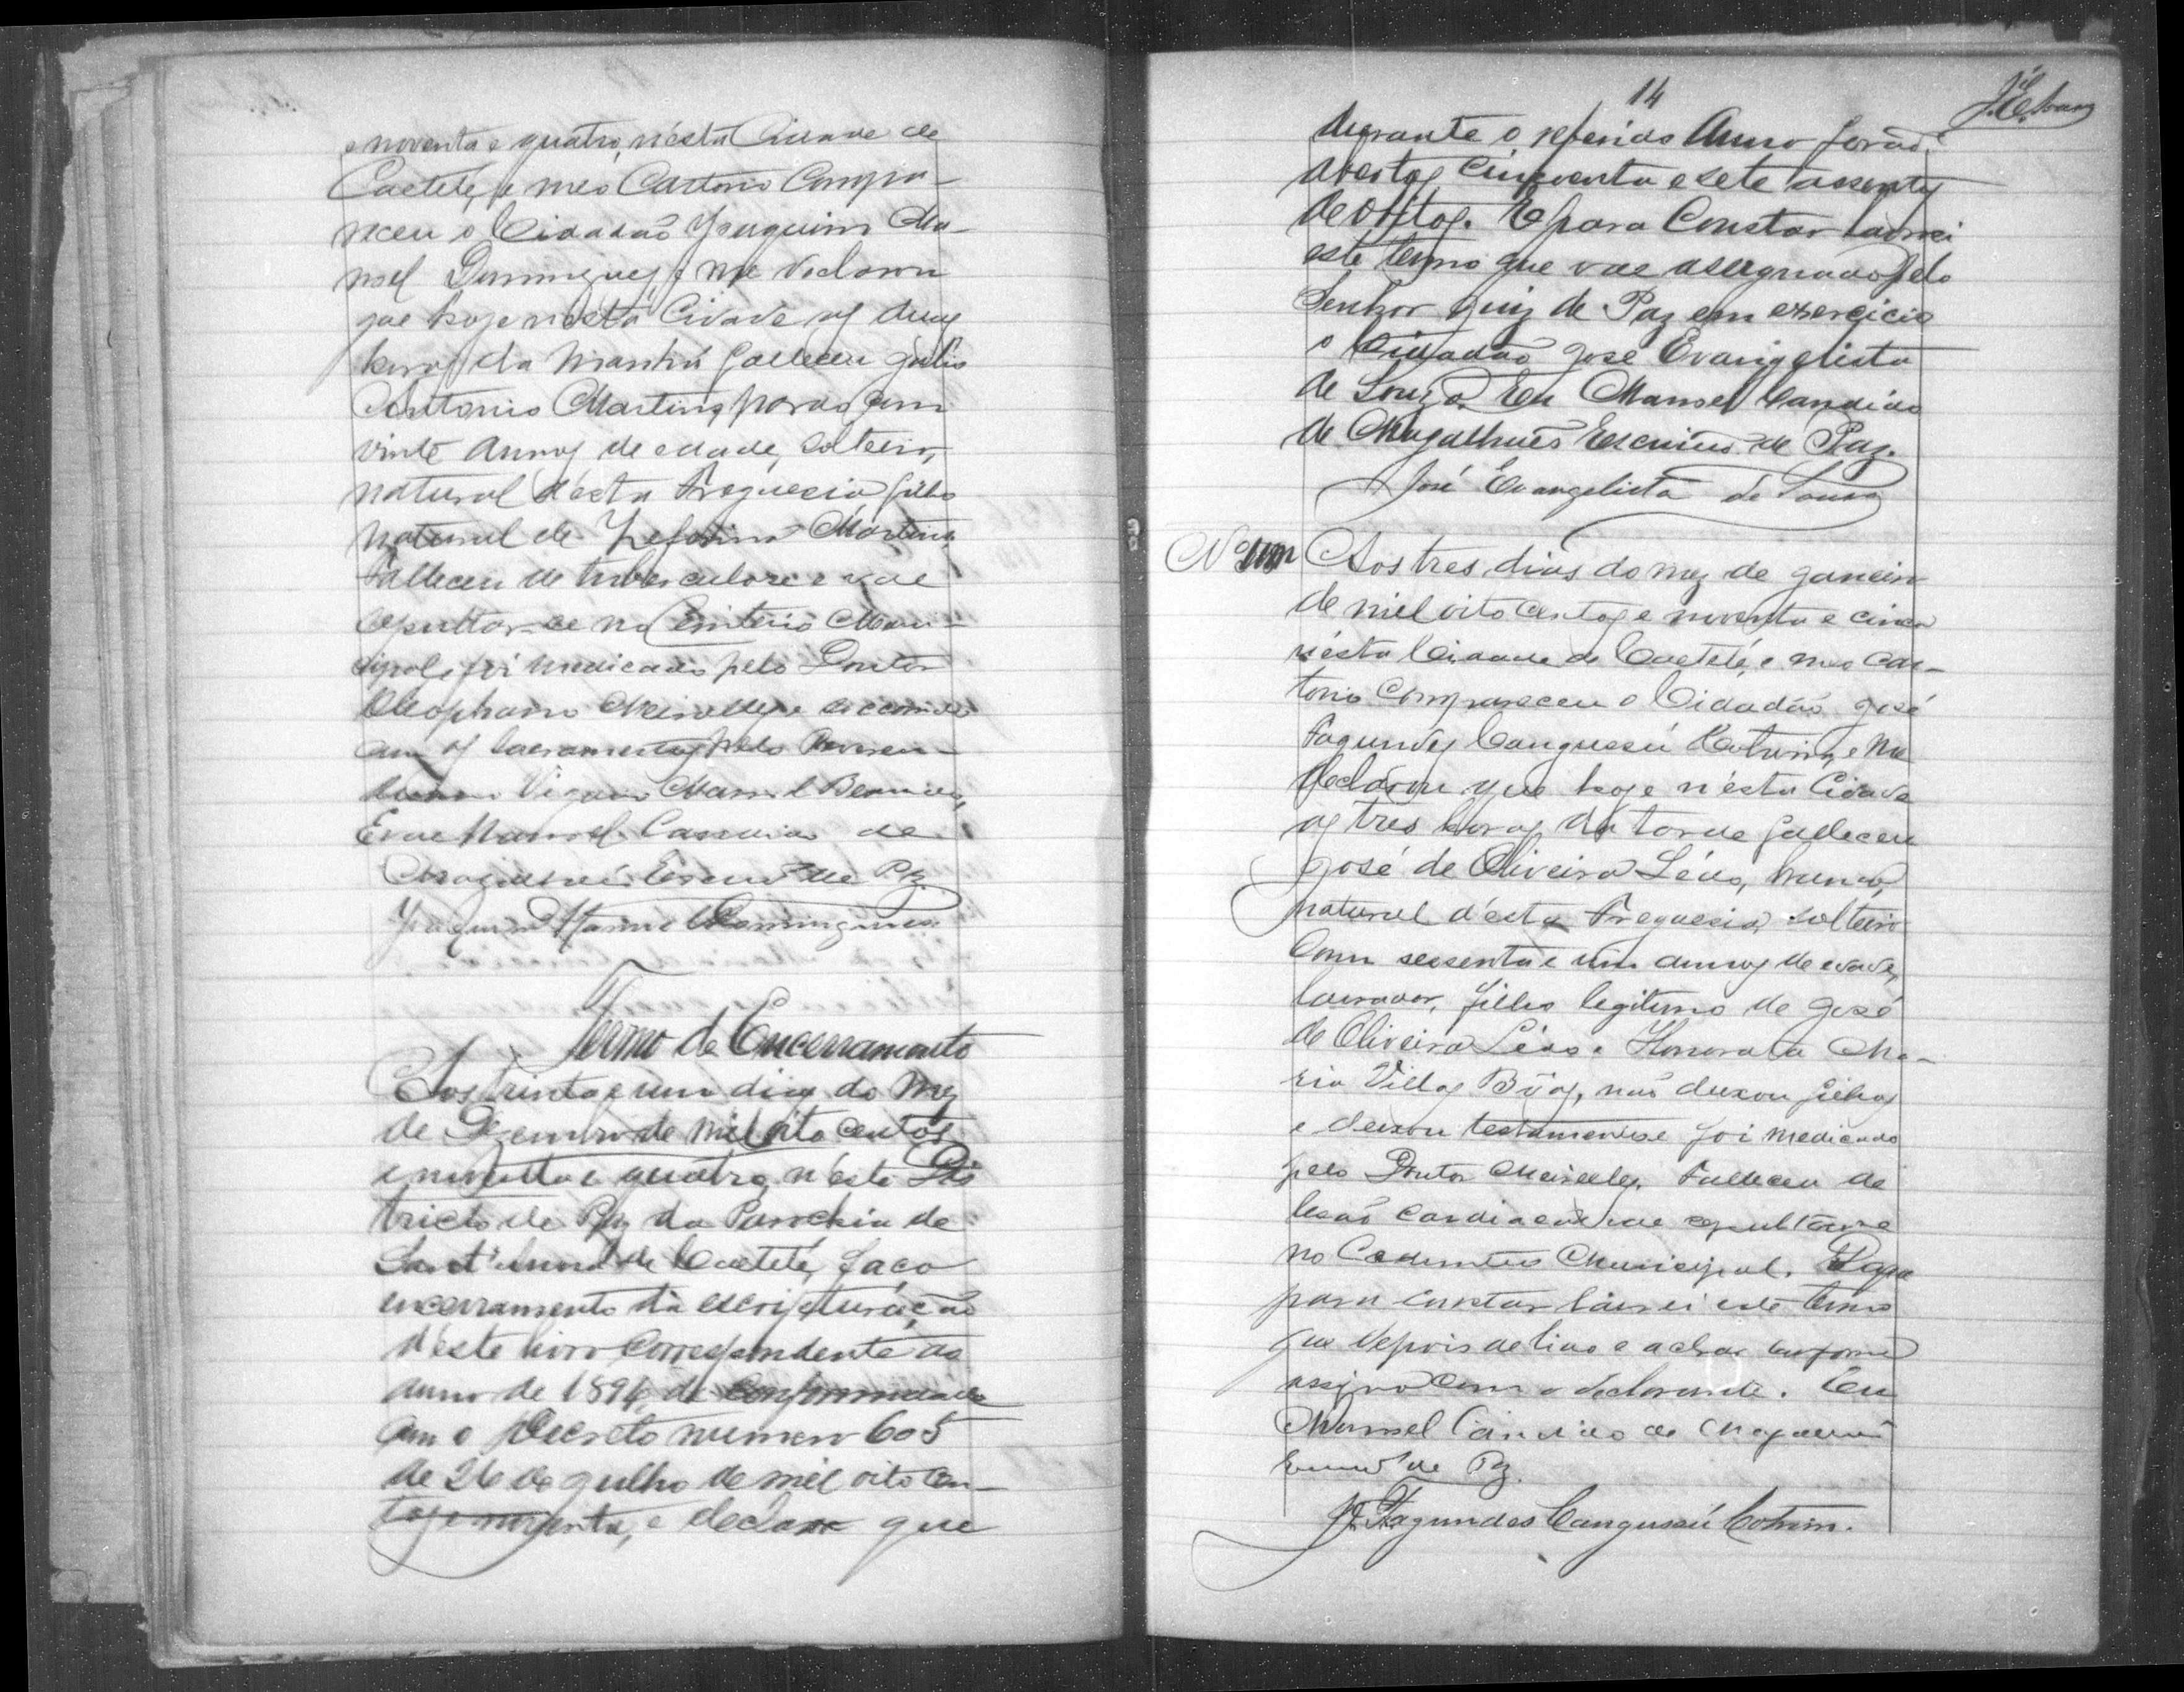 e noventa e quatro, n'ésta Cidade de
Caeteté, e meo Cartorio Compa-
receu o Cidadão Joaquim Ma-
noel Domingues, e me declarou
que hoje nésta Cidade as duas
horas da manhã falleceu Julio
Antonio Martins pardo com
vinte annos de edade, solteiro,
natural d'ésta Freguesia filho
natural de Zeferina Martins,
Falleceu de tuberculose e vae
sepultar-se no Cemiterio Mun-
cipal, foi medicado pelo Doutor
Cleophano Meirelles e soccorrido
com os sacramentos pelo Reveren-
dissimo Vigario Manoel Benvindo,
Eu Manoel Candido de
Magalhães Escrivão de Paz
Joaquim Manoel Domingues
Termo de Encerramento
Aos trinta e um dias do mez
de Dezembro de mil oito centos
e noventa e quatro, n'éste Dis
tricto de Paz da Parochia de
Sant'Anna de Caeteté, faço
encerramento da escripturação
d'éste livro correspondente ao
anno de 1894, de conformidade
com o Decreto numero 605
de 26 de Julho de mil oito cen-
tos e noventa, e declaro que
14
J. E. Souza
durante o referido Anno forão
abertos Cincoenta e sete assentos
de obitos. E para Constar lavrei
este termo que vae assignado pelo
Senhor Juiz de Paz em exercicio
o Cidadão José Evangelista
de Souza. Eu Manoel Candido
de Magalhães Escrivão de Paz.
José Evangelista de Souza
Nº um
Aos tres dias do mez de Janeiro
de mil oito centos e noventa e cinco
n'ésta Cidade de Caeteté, e meo Car-
torio Compareceu o Cidadão José
Fagundes Cangussú Cotrim, e me
declarou que hoje n'ésta Cidade
as tres horas da tarde falleceu
José de Oliveira Léão, branco,
natural d'ésta Freguesia, solteiro
com sessenta e um annos de edade,
lavrador, filho legitimo de José
de Oliveira Léão e Honorata Ma-
ria Villas Bôas, não deixou filhos
e deixou testamento e foi medicado
pelo Doutor Meirelles. Falleceu de
lesão cardiaca e vae sepultar-se
no Cemiterio Municipal. Do que
para constar lavrei este termo
que depois de lido e achar conforme
assigno com o declarante. Eu
Manoel Candido de Magalhães
Escrivão de Paz.
J. Fagundes Cangussú Cotrim.